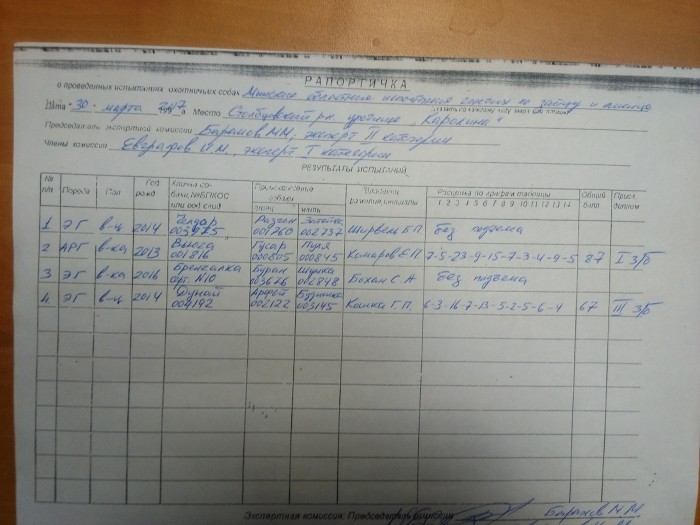 РАПОРТИЧКА
о проведенных испытаниях охотничьих собак Минские областные испытания гончих по зайцу и лисице
Дата "30" марта 2017 Место Столбцовский р-н, урочище "Каролина"
Председатель экспертной комиссии Баранов М.М, эксперт II категории
Члены комиссии Евграфов И.М, эксперт I категории
РЕЗУЛЬТАТЫ ИСПЫТАНИЙ
№ п/п Порода Пол Год рожд Кличка собаки, №БПКОС или род след Происхождение собаки отец мать Владелец фамилия, инициалы Расценка по графам таблицы 1 2 3 4 5 6 7 8 9 10 11 12 13 14 Общий балл Присж. диплом
1 ЭГ в-ц 2014 003975 001260 002737 Ширвель Б.П без гудема
2 АРГ в-ка 2013 Висса 001816 Гусар 000805 Пуля 000845 Комаров Е.П 7-5-23-9-15-7-3-4-9-5 87 I з/б
3 ЭГ в-ка 2016 Бренчалка 003676 Шумка 002848 Бохан С.А
4 ЭГ в-ц 2014 Дунай 004192 002122 003145 Кошка Г.П. 6-3-16-7-13-5-2-5-6-4 67 III з/б
Экспертная комиссия: Председатель Баранов М.М.